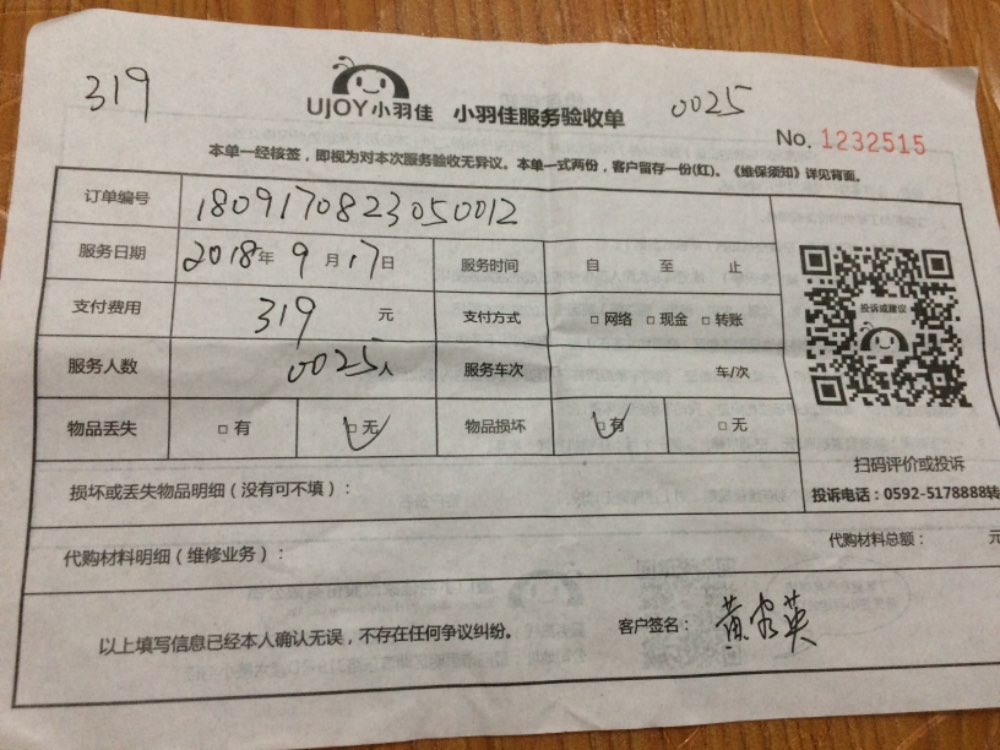 319
0025
UJOY小羽佳 小羽佳服务验收单
No. 1232515
本单一经核签，即视为对本次服务验收无异议。本单一式两份，客户留存一份(红)。《维保须知》详见背面。
订单编号 1809170823050012
服务日期 2018年9月17日 服务时间 自 至 止
支付费用 319 元 支付方式 □网络 □现金 □转账
服务人数 0025人 服务车次 车/次
物品丢失 □有 □无 物品损坏 □有 □无
投诉或建议
扫码评价或投诉
投诉电话：0592-5178888转
损坏或丢失物品明细（没有可不填）：
代购材料明细（维修业务）： 代购材料总额： 元
以上填写信息已经本人确认无误，不存在任何争议纠纷。 客户签名：